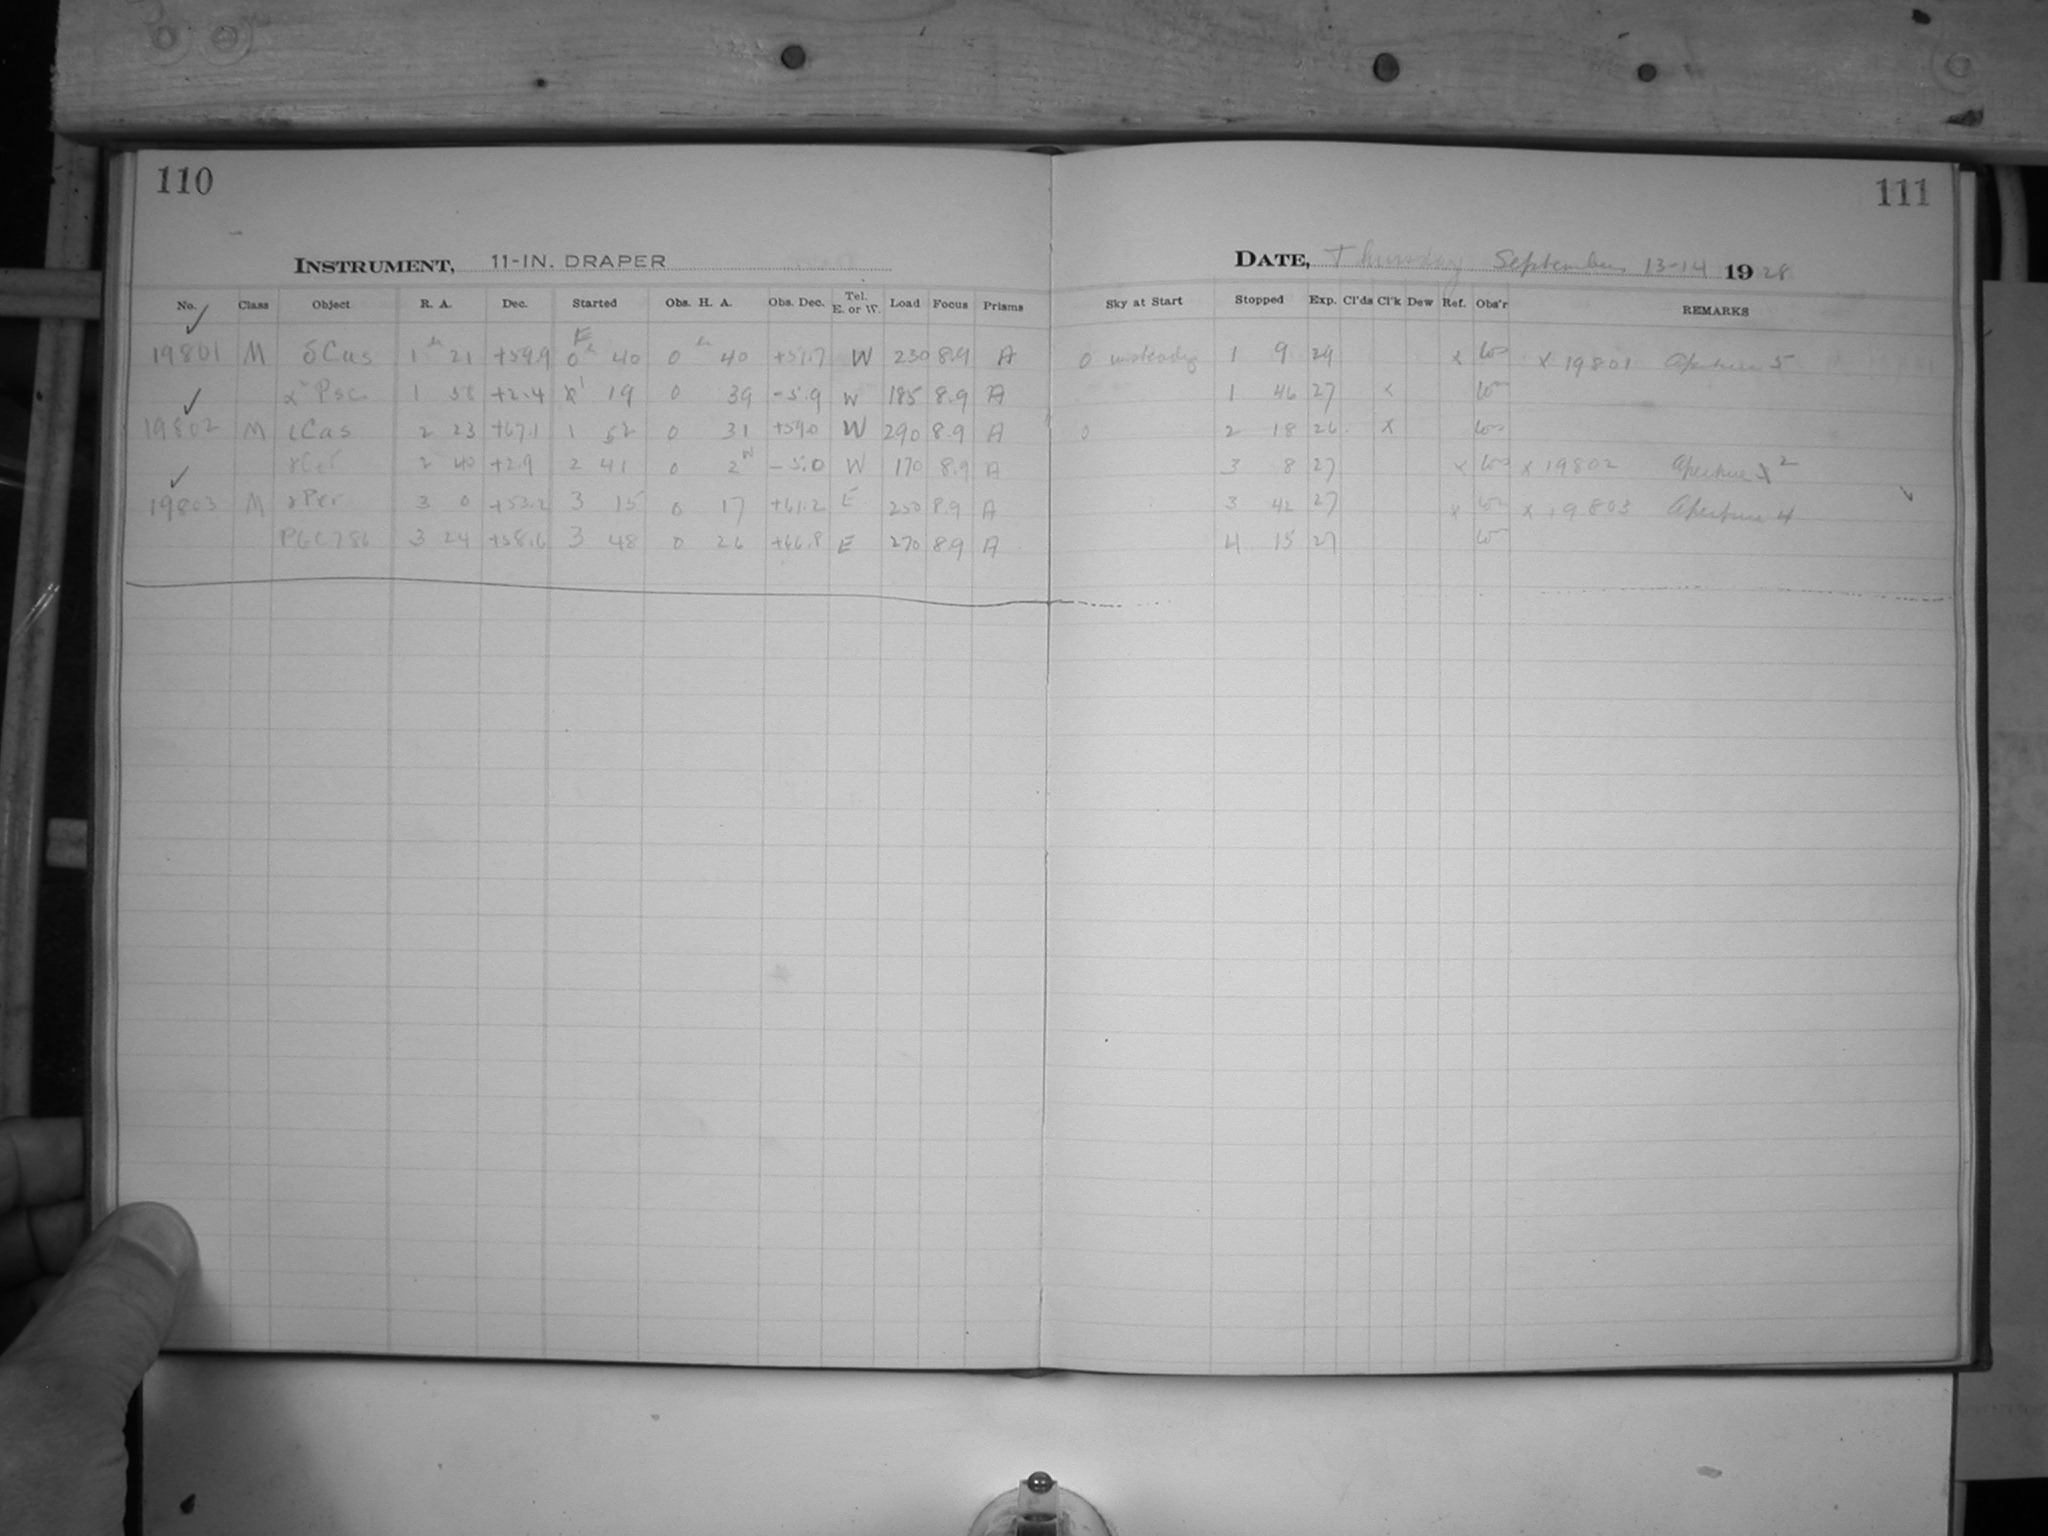 110
111
INSTRUMENT, 11-IN. DRAPER
DATE, Thursday September 13-14 1928
No. Class Object R. A. Dec. Started Obs. H. A. Obs. Dec. Tel. E. or W. Load Focus Prisms Sky at Start Stopped Exp. Cl'ds Cl'k Dew Ref. Obs'r REMARKS
✓ E
19801 M δCas 1h 21 +59.9 0h 40 0h 40 W 230 8.9 A 0 unsteady 1 9 29 x x 19801 Aperture 5
α Psc 1 58 +2.4 1 19 0 39 -5.9 W 185 8.9 A 1 46 27 x
✓
19802 M ιCas 2 23 +67.1 1 52 0 31 +59.0 W 290 8.9 A 0 2 18 26 x
2 40 +2.9 2 41 0 2W -5.0 W 170 8.9 A 3 8 27 x x 19802 Aperture 2
✓
19803 M γPer 3 0 +53.2 3 15 0 17 +61.2 E 250 8.9 A 3 42 27 x x 19803 Aperture 4 ✓
PGC786 3 24 +58.6 3 48 0 26 +66.8 E 270 8.9 A 4 15 27